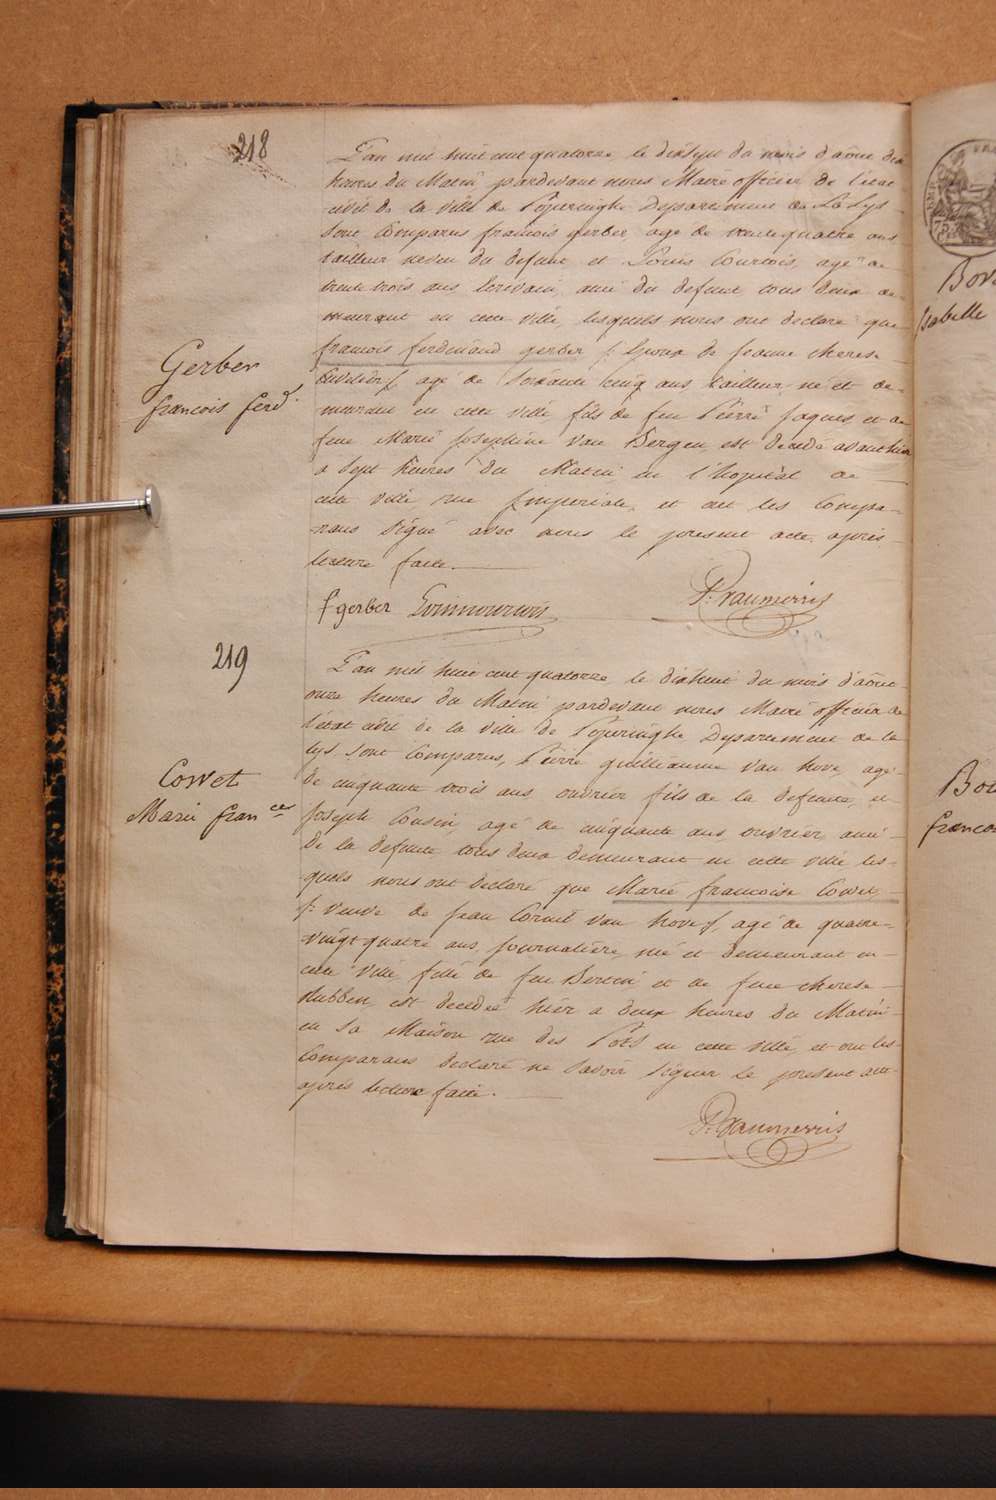 218
L'an mil huit cent quatorze le dixsept du mois d'aôut dix
heures du Matin pardevant nous Maire officier de l'état
civil de la ville de Poperinghe Departement de La Lys
sont Comparus francois gerber, agé de trente quatre ans
tailleur neveu du defunt et Louis Courtois, agé de
trente trois ans Ecrivain, ami du defunt tous deux de-
meurant en cette ville, lesquels nous ont declaré que
Gerber
francois ferd.
francois ferdinand gerber /: Epoux de Jeanne therese
agé de soixante cinq ans, tailleur, né et de-
meurant en cette ville, fils de feu Pierre Jaques, et de
feue Marie Josephine Van Bergen, est decedé avanthier
a sept heures du Matin en l'hopital de
cette ville rue Imperiale, et ont les Compa-
rans signé avec nous le present acte, après
lecture faite.
f gerber
219
L'an mil huit cent quatorze le dixhuit du mois d'aôut
onze heures du Matin pardevant nous Maire officier de
l'état civil de la ville de Poperinghe Departement de la
Lys sont Comparus, Pierre guilliaume van hove, agé
de cinquante trois ans ouvrier fils de la defunte, et
Cowet
Marie frances
Joseph Cousin, agé de cinquante ans, ouvrier ami
de la defunte tous deux demeurant en cette ville les-
quels nous ont declaré que Marie francoise Cowet,
/: veuve de Jean Cornil van hove/, agé de quatre-
vingt quatre ans, Journalière, née et demeurant en
cette ville, fille de feu Bertin et de feue therese
Hubben, est decedée hier a deux heures du Matin
en sa Maison rue des Pots en cette ville, et ont les
Comparans declaré ne savoir signer le present acte
après lecture faite.
Isabelle